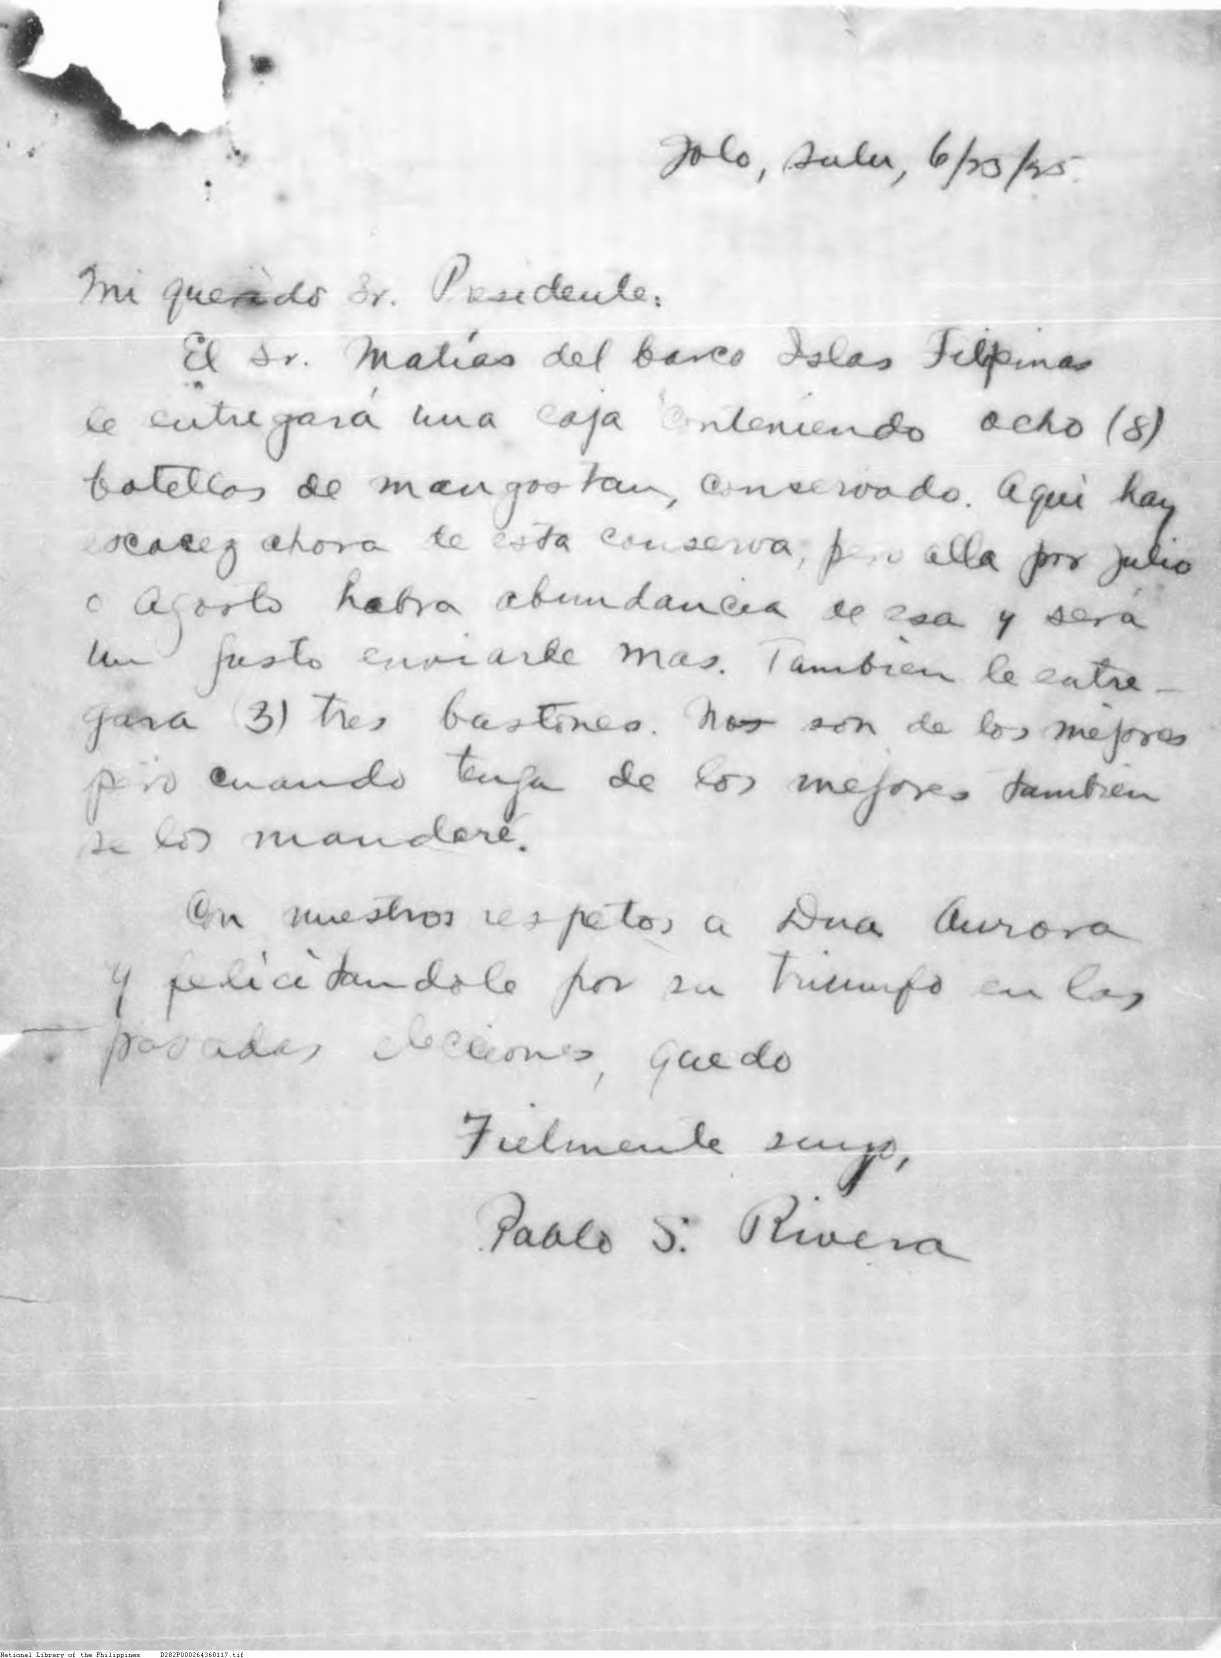 Jolo, Sulu, 6/23/25.
Mi querido Sr. Presidente:
El Sr. Matías del barco Islas Filipinas
le entregará una caja conteniendo ocho (8)
botellas de mangostan, conservado. Aqui hay
escacez ahora de esta conserva, pero alla por julio
o Agosto habra abundancia de esa y será
un gusto enviarle mas. Tambien le entre-
gara (3) tres bastones. No son de los mejores
pero cuando tenga de los mejores tambien
se los mandaré.
Con nuestros respetos a Dna Aurora
y felicitandole por su triumfo en las
pasadas elecciones, quedo
Fielmente suyo,
Pablo S. Rivera
National Library of the Philippines D282P000264360117.tif